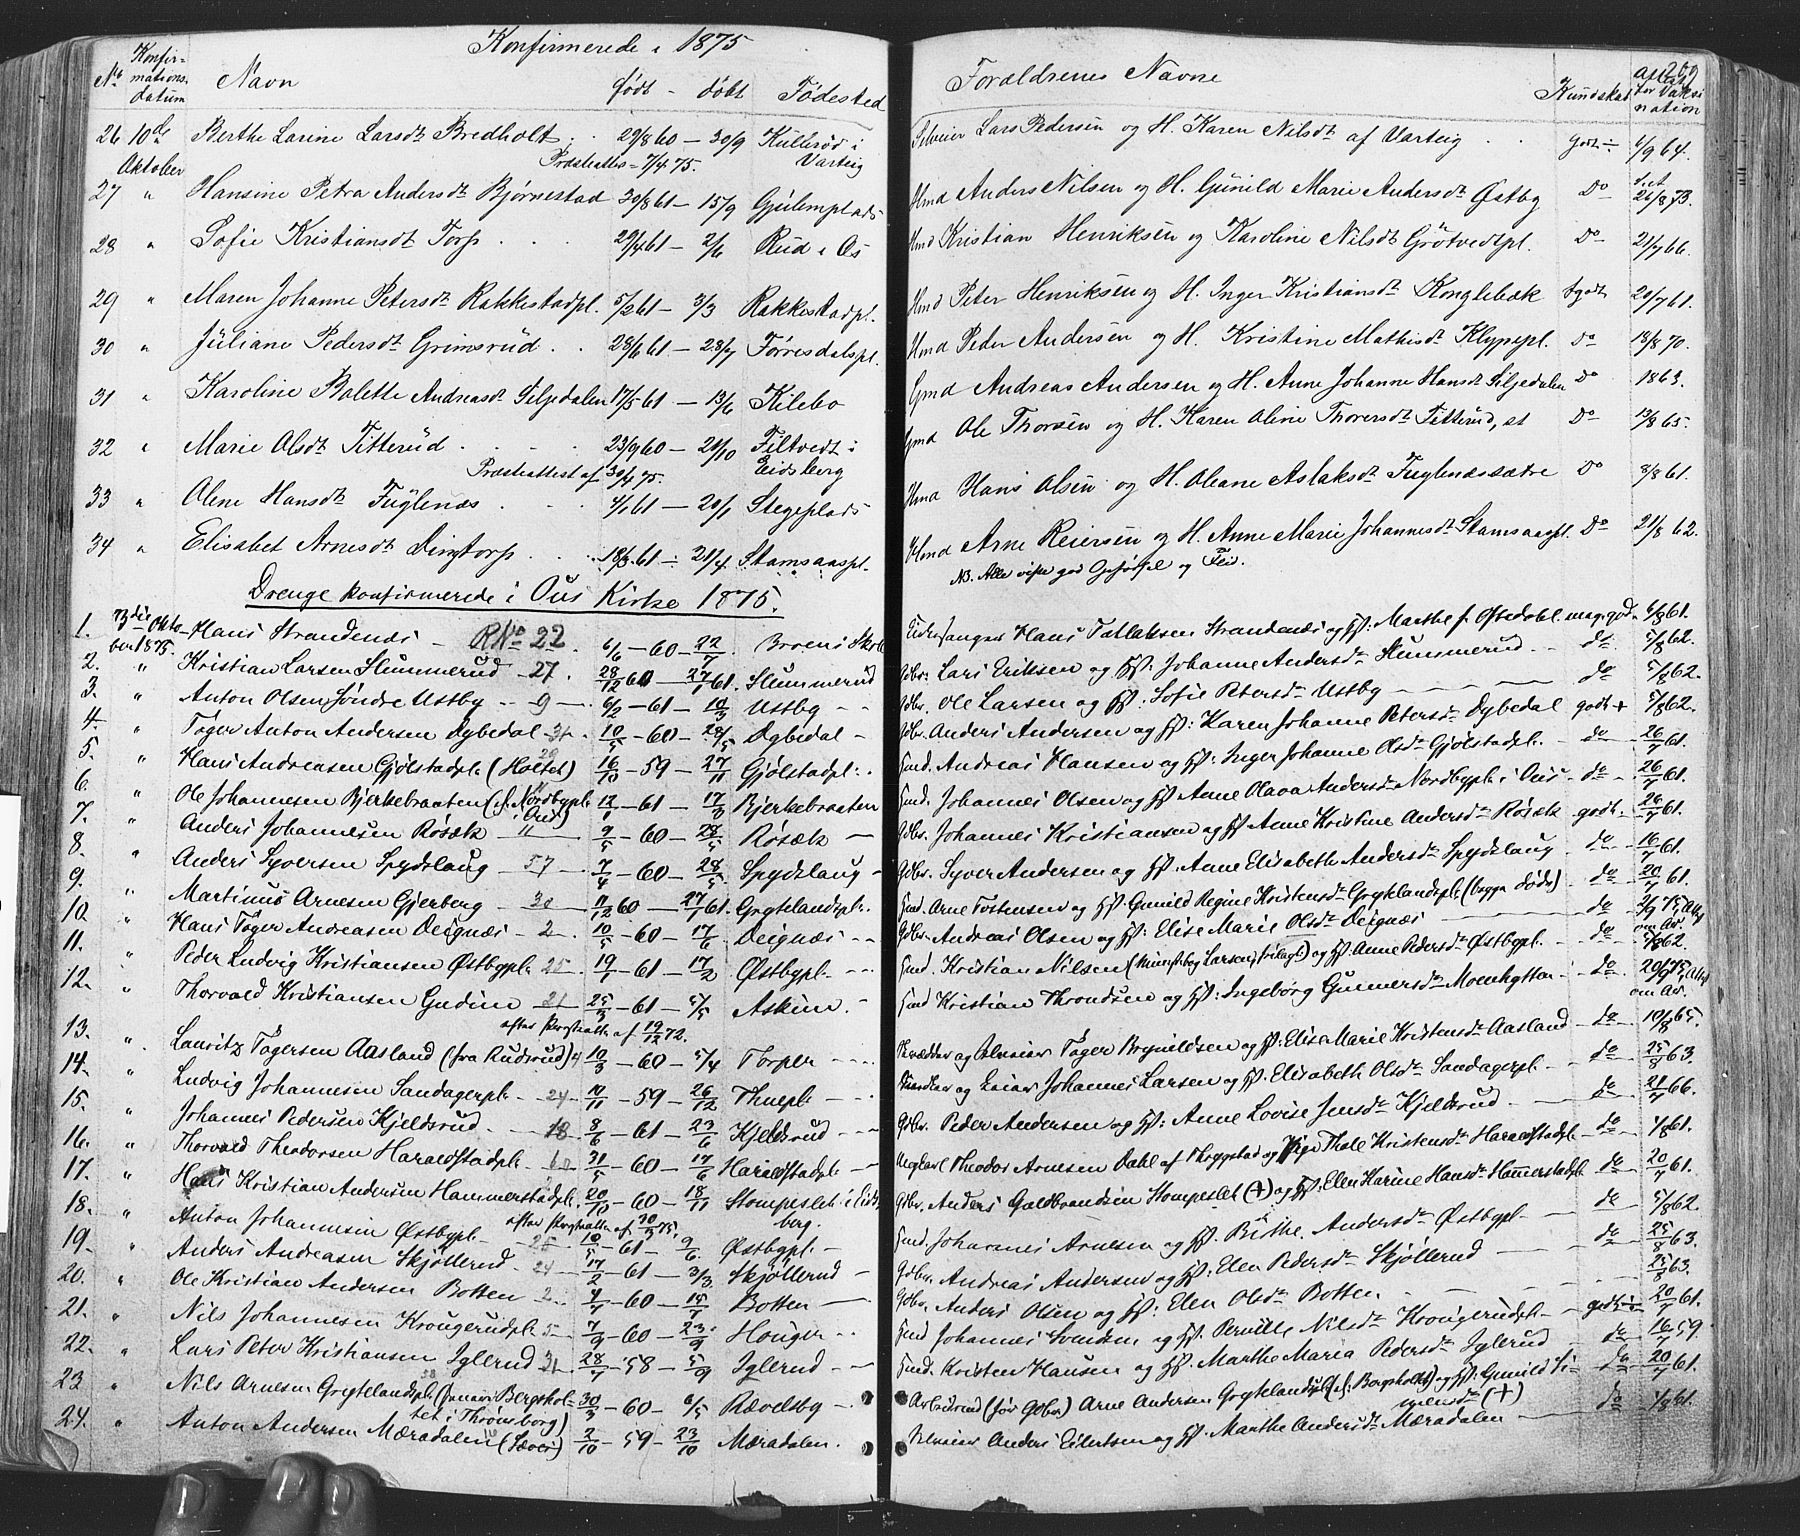 Konfirmerede i 1875
No Konfirmationsdatum Navn født - döbt Födested Forældrenes Navne Kundskab for Vaksination
26 10de Oktober Berthe Larine Larsdt Bredholt 29/8 60 — 30/9 Kullerød i Varteig Lars Pedersen og H. Karen Nilsdt af Varteig Godt ÷ 6/9 64.
Præsteattes 7/4 75.
27 " Hansine Petra Andersdt Bjørnestad 30/8 61 — 15/9 Gjulemplads Hmd Anders Nilsen og H. Gunild Marie Andersdt Østby Do 26/8 73.
28 " Sofie Kristiansdt Torp 29/4 61 — 2/6 Rud i Os Hmd Kristian Henriksen og Karoline Nilsdt Grötvedtpl. Do 21/7 66.
29 " Maren Johanne Petersdt Rakkestadpl. 5/2 61 — 3/3 Rakkestadpl. Hmd Peter Henriksen og H. Inger Kristiansdt Konglebæk 20/7 61.
30 " Juliane Pedersdt Grimsrud 28/6 61 — 28/7 Førresdalspl. Hmd Peder Andersen og H. Kristine Mathisdt Klypepl. Do 13/8 70.
31 " Karoline Balette Andreasdt Siljedalen 17/5 61 — 13/6 Kilebo Gmd Andreas Andersen og H. Anne Johanne Hansdt Siljedalen Do 1863.
32 " Marie Olsdt Titterud 23/9 60 — 21/10 Filtvedt i Eidsberg Gmd Ole Thorsen og H. Karen Oline Thorersdt Titterud, Do 13/8 65.
Præsteattest af 30/4 75.
33 " Oline Hansdt Fuglenæs 4/1 61 — 20/1 Stegeplads Hmd Hans Olsen og H. Oleane Aslaksdt Fuglenæssætre Do 8/8 61.
34 " Elisabet Arnesdt Dingtorp 18/3 61 ÷ 21/4 Stamsaaspl. Hmd Arne Reiersen og H. Anne Marie Johannesdt Stamsaaspl. Do 21/8 62.
NB. Alle viste god Opførsel og Flid.
Drenge konfirmerede i Ous Kirke 1875.
1. 3die Oktober 1875. Hans Strandenæs — R No 22 6/6 — 60 — 22/7 Hans Tollaksen Strandenæs og H: Marthe f. Østedahl meg. god. 6/8 61.
2. " Kristian Larsen Slummerud — 27 28/12 60 — 27/1 61. Slummerud Gdbr. Lars Eriksen og H: Johanne Andersdt Slummerud do 5/8 62.
3. " Anton Olsen Søndre Ustby — 9 6/2 — 61 — 10/3 Ustby Gdbr. Ole Larsen og H: Sofie Petersdt Ustby do 5/8 62.
4. " Töger Anton Andersen Dybedal 31 10/5 — 60 — 28/5 Dybedal Gdbr. Anders Andersen og H: Karen Johanne Petersdt Dybedal godt + 5/8 62.
5. " Hans Andreasen Gjølstadpl. (Holtet) 16/10 — 59 — 27/11 Gjølstadpl. Hmd. Andreas Hansen og H: Inger Johanne Olsdt Gjölstadpl. do 26/7 61.
6. " Ole Johannesen Bjerkebraaten (f. Nordbypl. i Ous) 12/1 — 61 — 17/3 Bjerkebraaten Hmd. Johannes Olsen og H: Anne Olava Andersdt Nordbypl. i Ous do 26/7 61.
7. " Anders Johannesen Rösæk 11 9/5 — 60 — 28/5 Rösæk Gdbr. Johannes Kristiansen og H: Anne Kristine Andersdt Rösæk godt 26/7 61.
8. " Anders Syversen Spydslaug 57 7/4 — 60 — 28/5 Spydslaug Gdbr. Syver Andersen og H: Anne Elisabeth Andersdt Spydslaug do 16/7 61.
9. " Martinus Arnesen Gjerberg 30 11/12 60 — 27/1 61. Grytelandspl. Hmd. Arne Tostensen og H: Gunild Regine Kristensdt Grytelandspl. (begge døde) do 20/7 61.
10. " Hans Töger Andreasen Deignæs 2 10/5 — 60 — 17/6 Deignæs Gdbr. Andreas Olsen og H: Elise Marie Olsdt Deignæs do 2/9 75,
11. " Peder Ludvig Kristiansen Østbypl. 25 19/1 — 61 — 17/2 Østbypl. Hmd. Kristian Nilsen og H: Anne Pedersdt Østbypl. do 5/8 62.
12. " Thorvald Kristiansen Gudim 21 25/3 — 61 — 5/5 Askim Hmd Kristian Throndsen og H: Ingeborg Gunnersdt Moenhytten do 20/9 75,
efter Præstatt. af 19/12 72.
13. " Lauritz Tögersen Aasland (fra Rudsrud) 4 10/3 — 60 — 5/4 Torper Skrædder og Inderst Töger Brynildsen og H: Elise Marie Kristensdt Aasland do 10/8 65.
14. " Ludvig Johannesen Sandagerpl. 24 10/11 — 59 — 26/12 Thuepl. Johannes Larsen og H: Elisabeth Olsdt Sandagerpl. do 25/8 63.
15. " Johannes Pedersen Kjeldsrud 18 8/6 — 61 — 23/6 Kjeldsrud Gdbr. Peder Andersen og H: Anne Lovise Jensdt Kjeldsrud do 21/7 66.
16. " Thorvald Theodorsen Haraldstadpl. 60 31/5 — 60 — 17/6 Haraldstadpl. Ungkarl Theodor Arnesen Dahl af Thygstad og Pige Thale Kristensdt Haraldstadpl. do 1/8 61.
17. " Hans Kristian Andersen Hammerstadpl. 20/10 — 60 — 18/11 Stompeslet i Eidsberg. Gdbr. Anders Guldbrandsen Stompeslet (+) og H: Elen Karine Hansdt Hammerstadpl. do 20/7 61.
efter Præstatt. af 30/9 75.
18. " Anton Johannesen Østbypl. 25 10/5 — 61 — 9/6 Østbypl. Hmd. Johannes Arnesen og H: Birthe Andersdt Østbypl. do 5/8 62.
19. " Anders Andreasen Skjöllerud 24 17/2 — 61 — 3/3 Skjöllerud Gdbr. Andreas Andersen og H: Elen Pedersdt Skjöllerud do 25/8 63.
20. " Ole Kristian Andersen Botten 2 4/7 — 60 — 15/7 Botten Gdbr. Anders Olsen og H: Elen Olsdt Botten 25/8 63.
21. " Nils Johannesen Krougerudpl. 5 7/9 — 60 — 23/9 Houger Hmd Johannes Svendsen og H: Pernille Nilsdt Krougerudpl. godt 20/7 61.
22. " Lars Peter Kristiansen Iglerud 31 28/7 — 58 — 5/9 Iglerud Hmd. Kristen Hansen og H: Marthe Maria Pedersdt Iglerud do 16/7 59.
23 " Nils Arnesen Grytelandspl. (f. navn Bergsholtet i Thrönsborg) 30/3 — 60 — 6/5 Rævelsby Arbeidsmd (før Gdbr) Arne Andersen Grytelandspl. (f. Bergsholtet) og H: Gunild Simensdt (+) do 20/7 61.
24. " Anton Andersen Mæradalen (Sæves) 2/10 — 59 — 23/10 Mæradalen. Anders Eilertsen og H: Marthe Andersdt Mæradalen do 1/8 61.